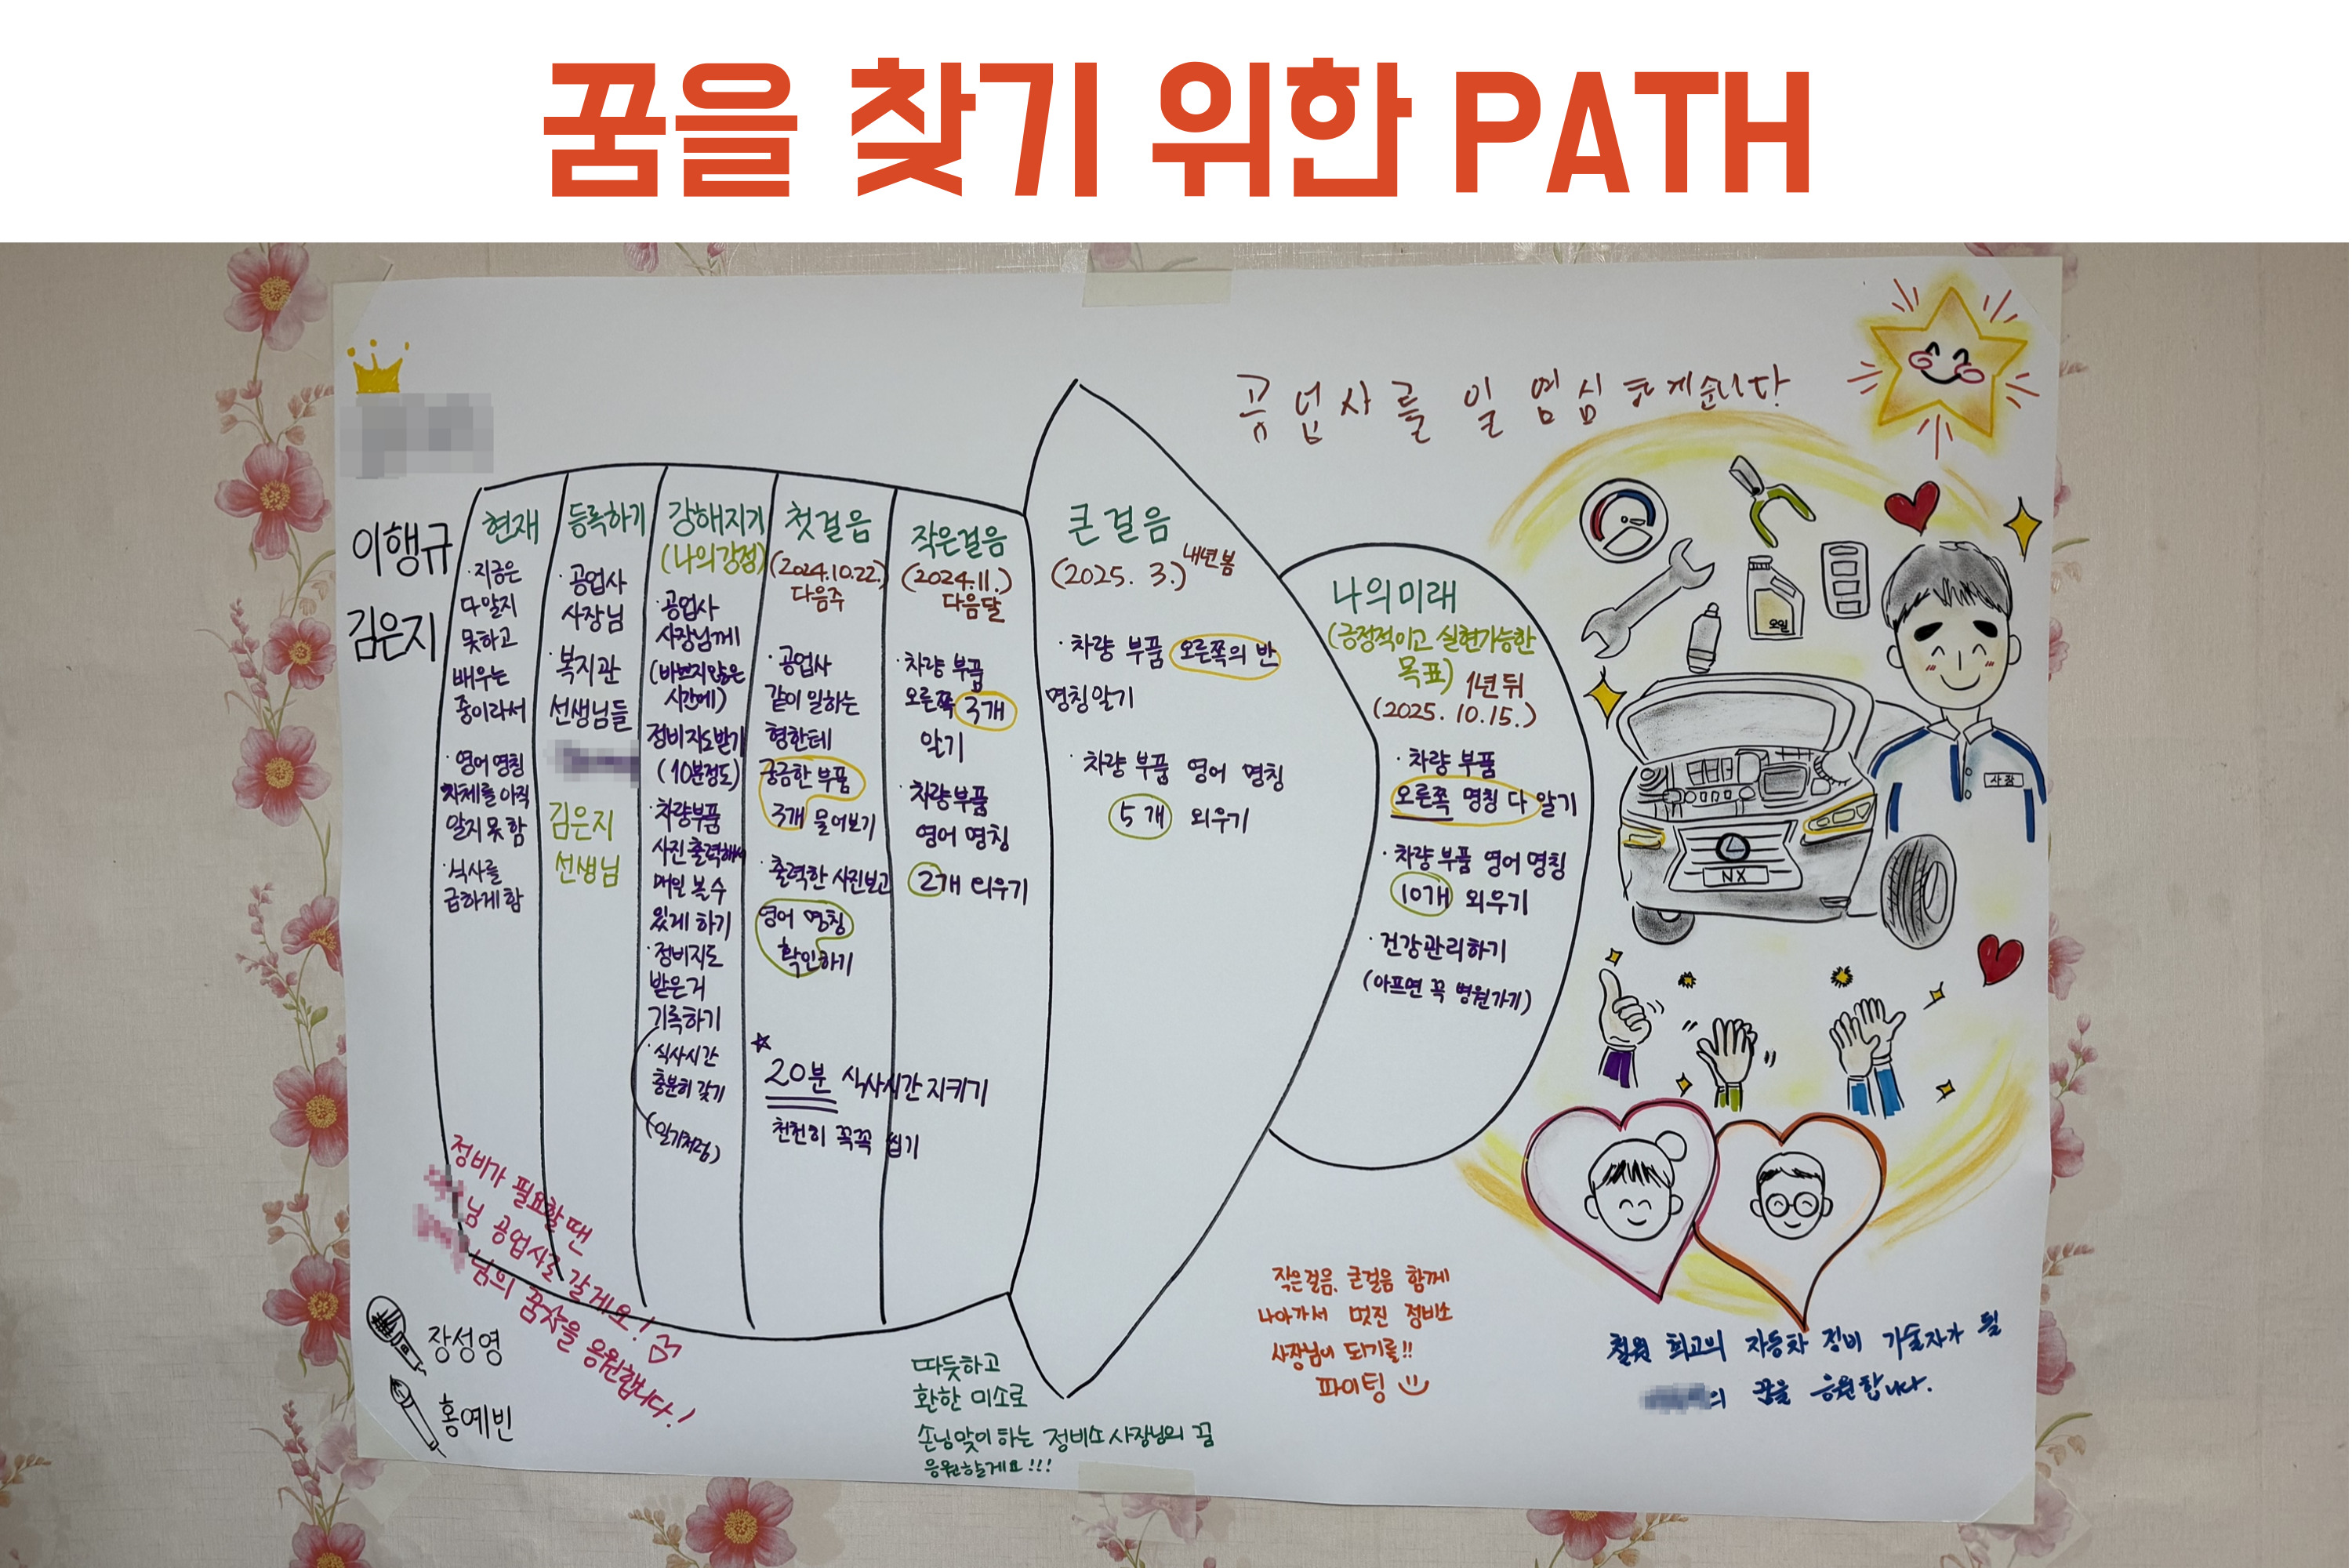 꿈을 찾기 위한 PATH
공업사를 일 열심히 하겠습니다!
이행규
김은지
현재
· 지금은
다알지
못하고
배우는
중이라서
· 영어 명칭
자체를 아직
알지 못함
· 식사를
급하게 함
등록하기
· 공업사
사장님
· 복지관
선생님들
김은지
선생님
강해지기
(나의강점)
· 공업사
사장님께
(바쁘지않은
시간에)
정비지도받기
(10분정도)
· 차량부품
사진 출력해서
매일 볼 수
있게 하기
· 정비지도
받은거
기록하기
· 식사시간
충분히 갖기
첫걸음
(2024.10.22.)
다음주
· 공업사
같이 일하는
형한테
궁금한 부품
3개 물어보기
· 출력한 사진보고
영어 명칭
확인하기
☆
20분 식사시간 지키기
천천히 꼭꼭 씹기
작은걸음
(2024.11.)
다음달
· 차량 부품
오른쪽 3개
알기
· 차량부품
영어 명칭
2개 외우기
큰걸음
(2025. 3.) 내년봄
· 차량 부품 오른쪽의 반
명칭알기
· 차량 부품 영어 명칭
5개 외우기
나의미래
(긍정적이고 실현가능한
목표) 1년뒤
(2025. 10.15.)
· 차량 부품
오른쪽 명칭 다 알기
· 차량 부품 영어 명칭
10개 외우기
· 건강관리하기
(아프면 꼭 병원가기)
오일
사장
NX
정비가 필요할땐
님 공업사로 갈게요!
님의 꿈을 응원합니다!
장성영
홍예빈
따듯하고
환한 미소로
손님맞이 하는 정비소 사장님의 꿈
응원할게요!!!
작은걸음, 큰걸음 함께
나아가서 멋진 정비소
사장님이 되기를!!
파이팅
철원 최고의 자동차 정비 기술자가 될
의 꿈을 응원합니다.